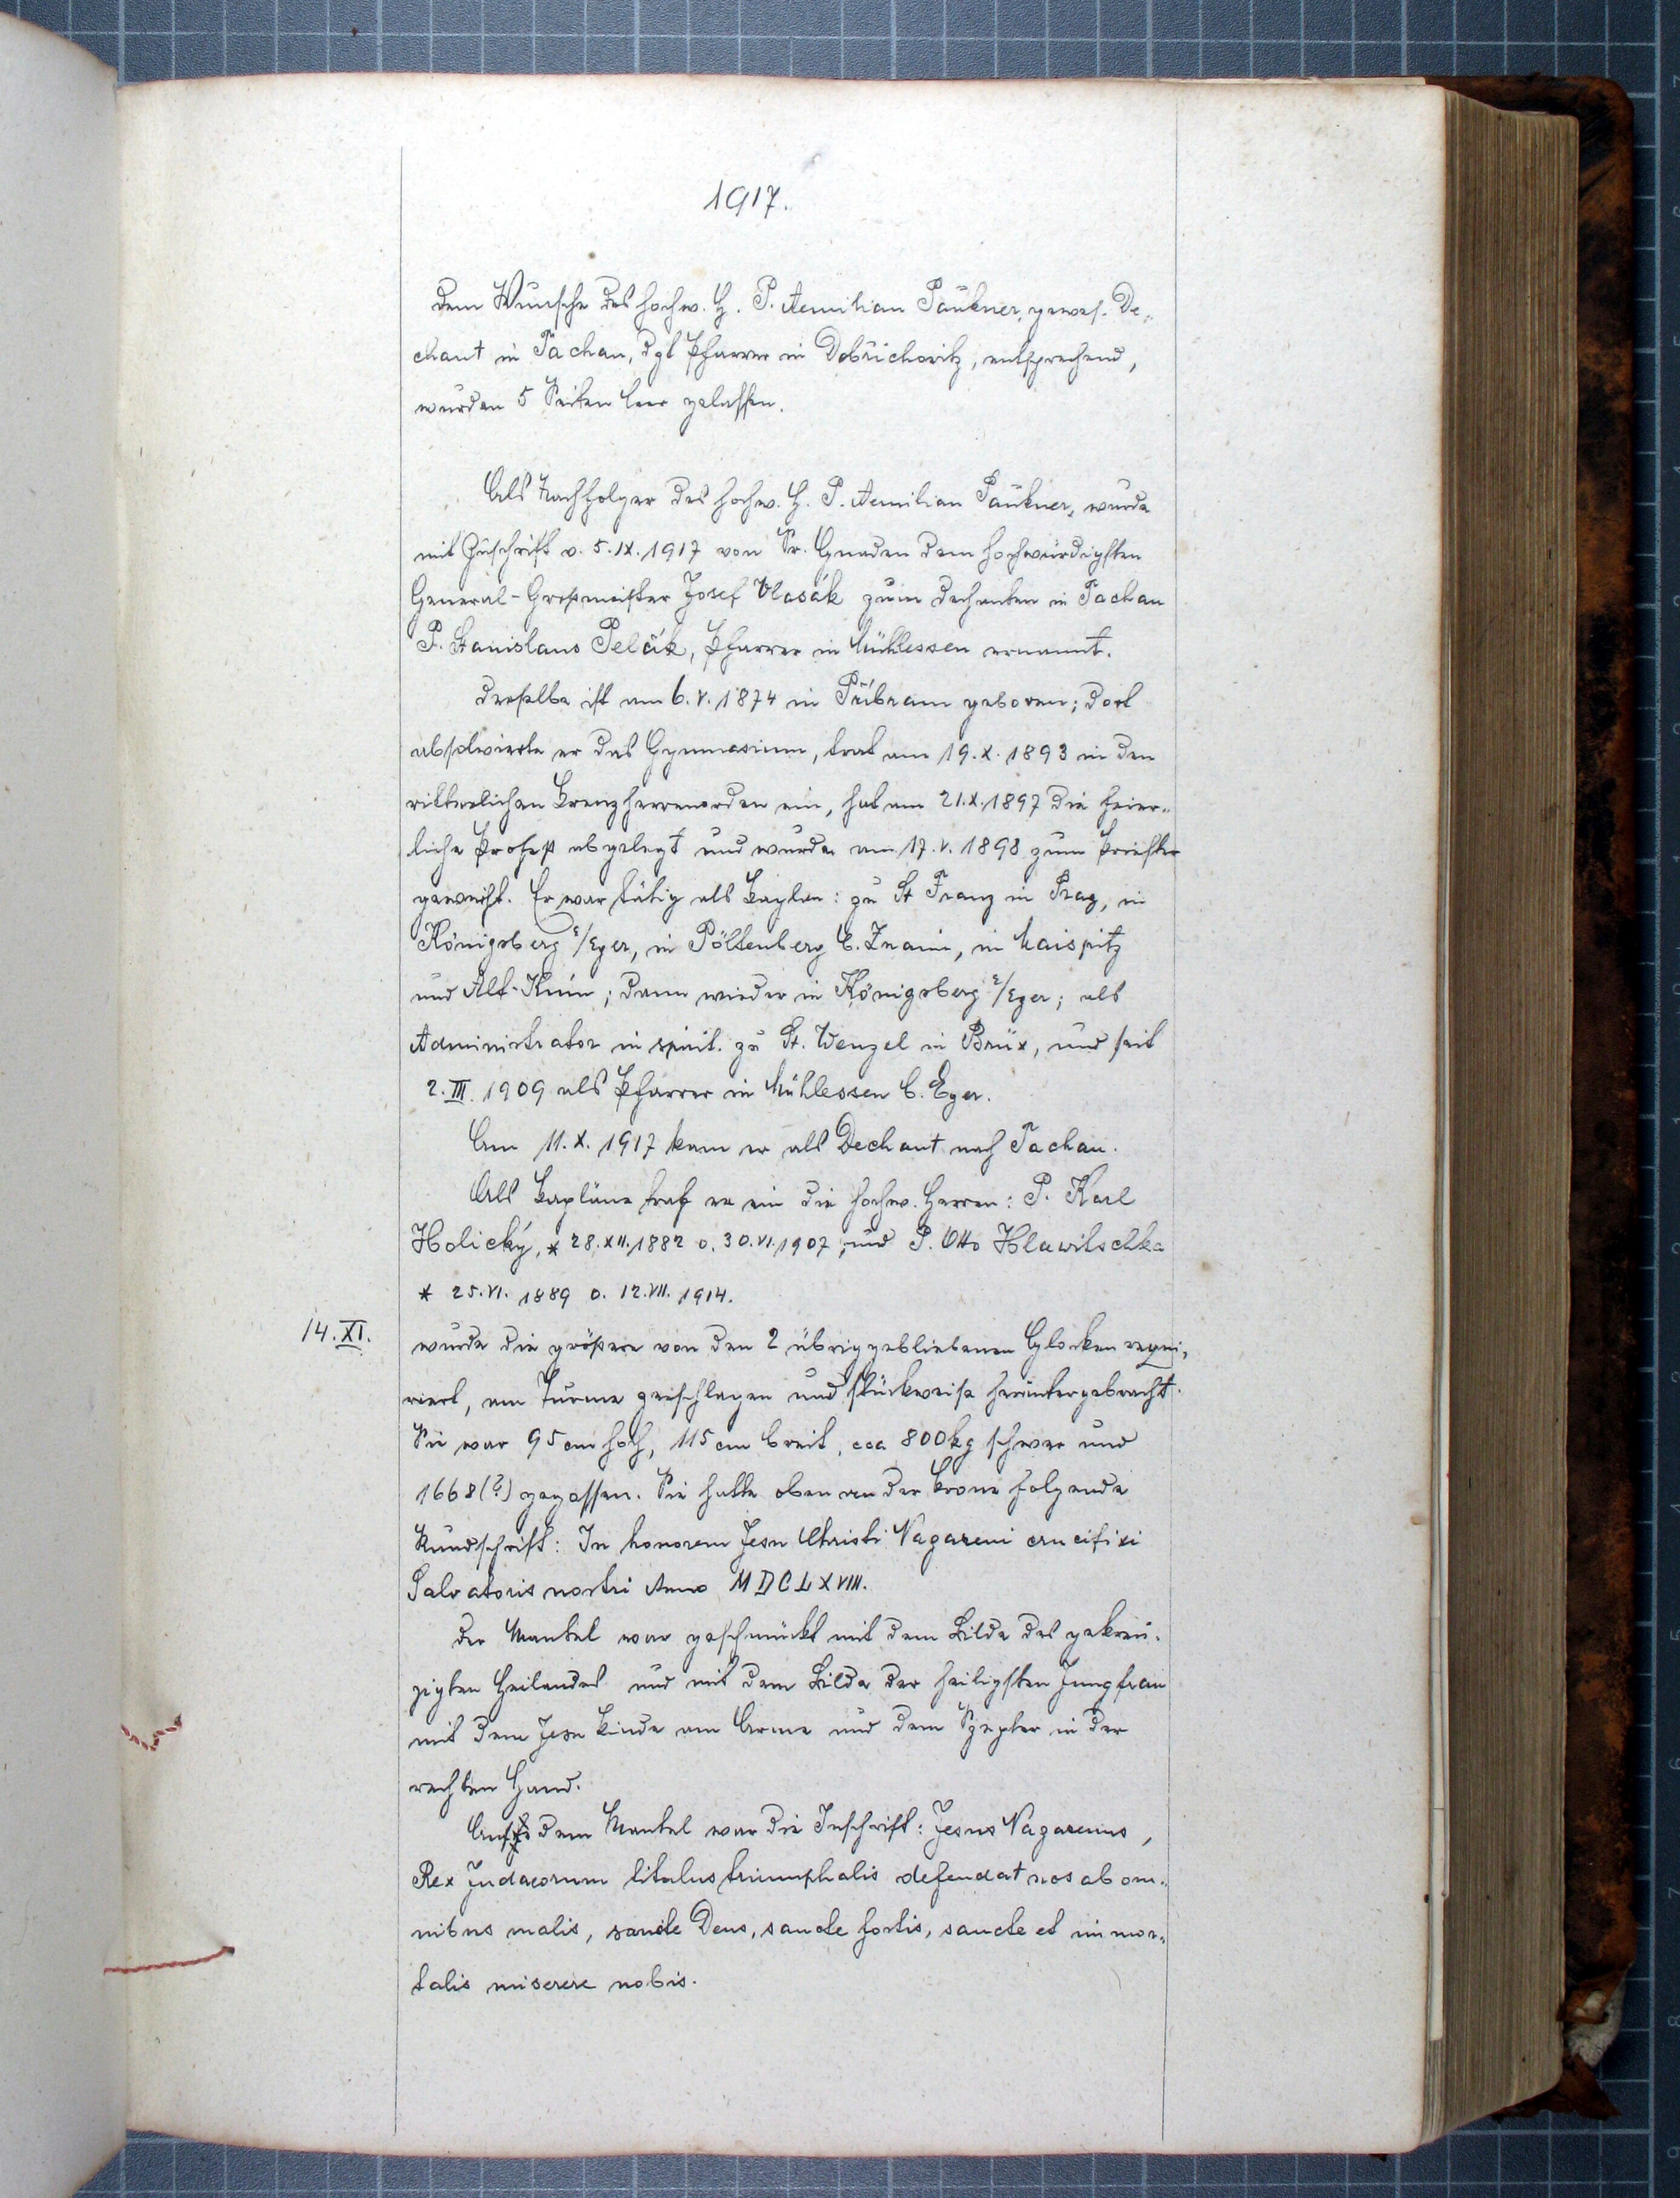 1917.
Dem Wunsche des hochw. H. P. Aemilian Paukner, gewes. De-
chant in Tachau, dzt Pfarrer in Dobřichovitz, entsprechend,
wurden 5 Seiten leer gelassen.
Als Nachfolger des hochw. H. P. Aemilian Paukner, wurde
mit Zuschrift v. 5.IX.1917 von Sr. Gnaden dem hochwürdigsten
General-Großmeister Josef Vlasák zum Dechanten in Tachau
P. Stanislaus Pelák, Pfarrer in Mühlessen ernannt.
Derselbe ist am 6.V.1874 in Příbram geboren; dort
absolvierte er das Gymnasium, trat am 19.X.1893 in den
ritterlichen Kreuzherrenorden ein, hat am 21.X.1897 die feier-
liche Profeß abgelegt und wurde am 17.V.1898 zum Priester
geweiht. Er war tätig als Kaplan: zu St Franz in Prag, in
Königsberg a/Eger, in Pöltenberg b. Znaim, in Maispitz
und Alt-Knin; dann wieder in Königsberg a/Eger; als
Administrator in spirit. zu St. Wenzel in Brüx, und seit
2.III.1909 als Pfarrer in Mühlessen b. Eger.
Am 11.X.1917 kam er als Dechant nach Tachau.
Als Kapläne traf er ein die hochw. Herren: P. Karl
Holický, * 28.XII.1882 o. 30.VI.1907, und P. Otto Hlawitschka
* 25.VI.1889 o. 12.VII.1914.
14.XI. wurde die größere von den 2 übriggebliebenen Glocken requi-
riert, am Turme zerschlagen und stückweise heruntergebracht.
Sie war 95 cm hoch, 115 cm breit, cca 800 kg schwer und
1668(?) gegossen. Sie hatte oben an der Krone folgende
Rundschrift: In honorem Jesu Christi Nazareni crucifixi
Salvatoris nostri Anno MDCLXVIII.
Der Mantel war geschmückt mit dem Bilde des gekreu-
zigten Heilandes und mit dem Bilde der heiligsten Jungfrau
mit dem Jesu Kinde am Arme und dem Szepter in der
rechten Hand.
Auf dem Mantel war die Inschrift: Jesus Nazarenus,
Rex Judaeorum titulus triumphalis defendat nos ab om-
nibus malis, sancte Deus, sancte fortis, sancte et immor-
talis miserere nobis.